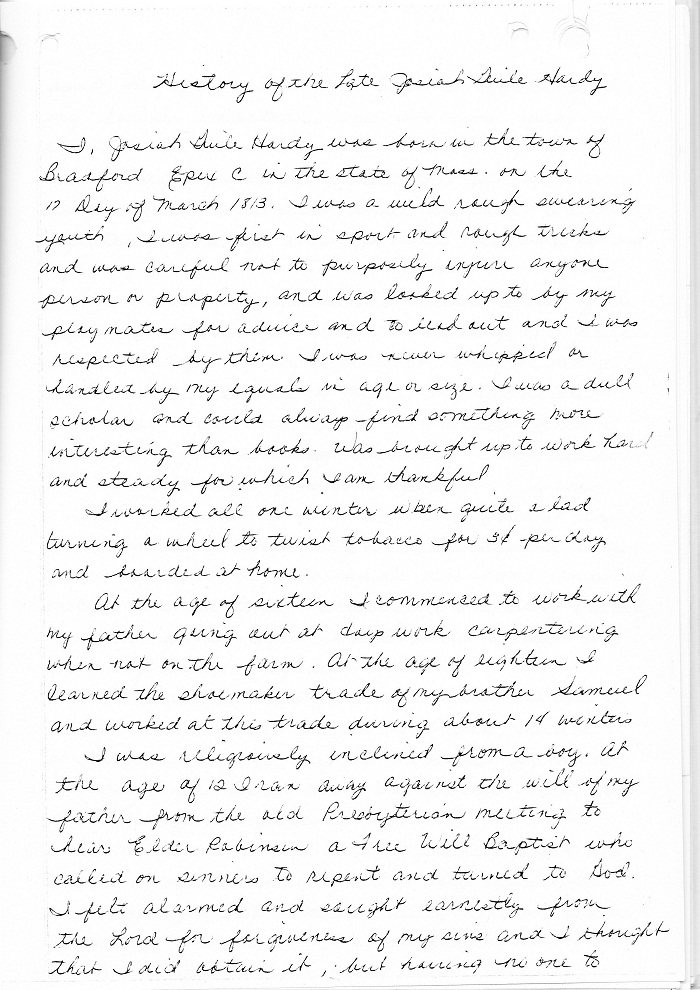 History of the Late Josiah Guile Hardy
I, Josiah Guile Hardy was born in the town of
Bradford Epix C in the state of Mass. on the
17 Day of March 1813. I was a wild rough swearing
youth, I was first in sport and rough tricks
and was careful not to purposly injure anyone
person or property, and was looked up to by my
playmates for advice and to lead out and I was
respected by them I was never whipped or
handled by my equals in age or size. I was a dull
scholar and could always find something more
interesting than books. Was brought up to work hard
and steady for which I am thankful
I worked all one winter when quite a lad
turning a wheel to twist tobacco for 3¢ per day
and boarded at home.
At the age of sixteen I commenced to work with
my father going out at days work carpentering
when not on the farm. At the age of eighteen I
learned the shoemaker trade of my brother Samuel
and worked at this trade during about 14 winters
I was religiously inclined from a boy. At
the age of 12 I ran away against the will of my
father from the old Presbyterian meeting to
hear Elder Robinson a Free Will Baptist who
called on sinners to repent and turned to God.
I felt alarmed and sought earnestly from
the Lord for forgiveness of my sins and I thought
that I did obtain it, but having no one to